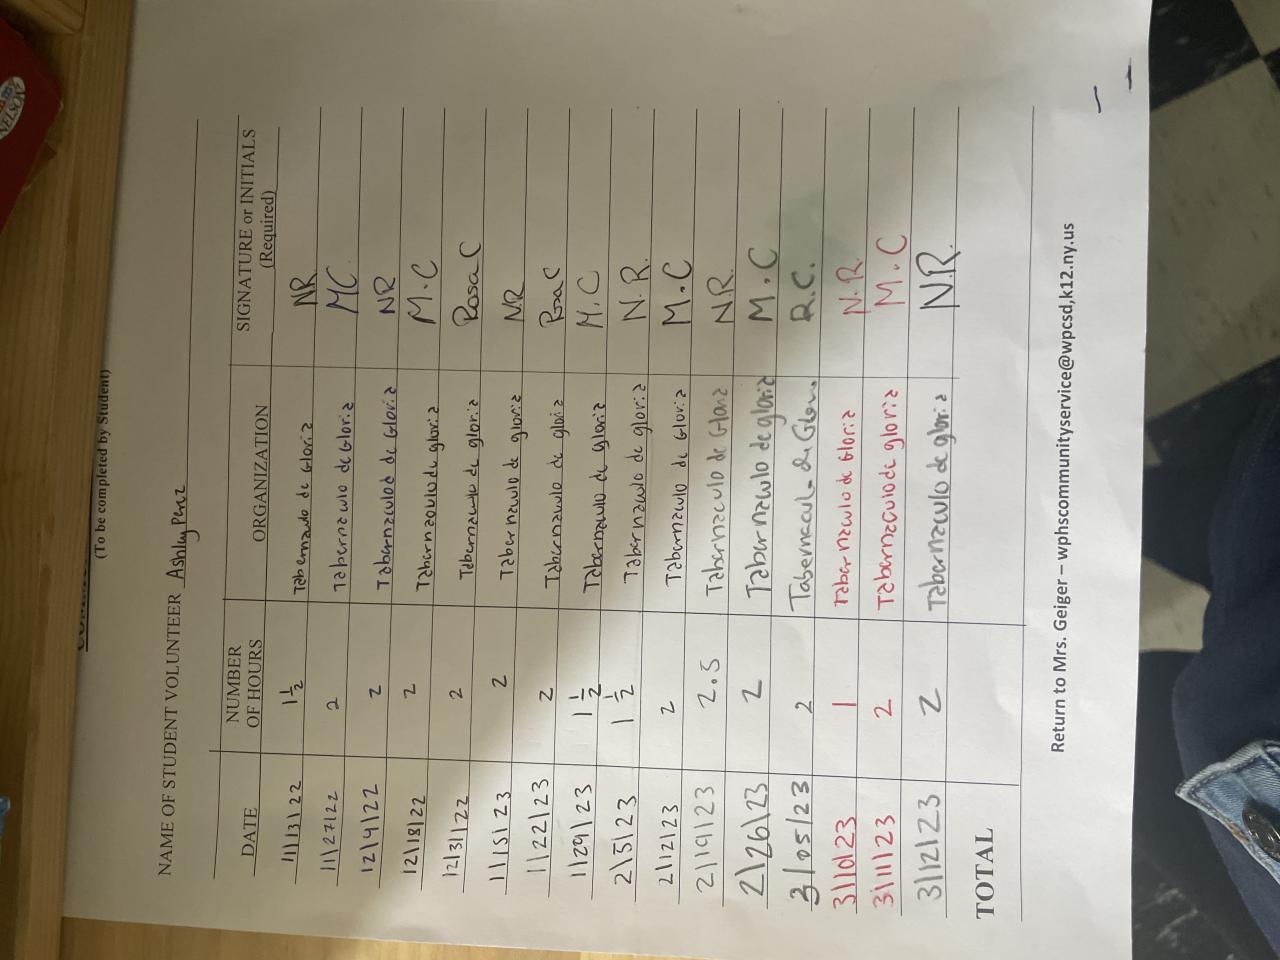 (To be completed by Student)
NAME OF STUDENT VOLUNTEER Ashley Perez
DATE NUMBER OF HOURS ORGANIZATION SIGNATURE or INITIALS (Required)
11/13/22 1 1/2 Tabernaculo de Gloria NR
11/27/22 2 Tabernaculo de Gloria MC
12/4/22 2 Tabernaculo de Gloria NR
12/18/22 2 Tabernaculo de gloria M.C
12/31/22 2 Tabernaculo de gloria Rosa C
1/15/23 2 Tabernaculo de gloria NR
1/22/23 2 Tabernaculo de gloria Rosa C
1/29/23 1 1/2 Tabernaculo de gloria M.C
2/5/23 1 1/2 Tabernaculo de gloria N.R.
2/12/23 2 Tabernaculo de Gloria M.C
2/19/23 2.5 Tabernaculo de Gloria N.R.
2/26/23 2 Tabernaculo de gloria M.C
3/05/23 2 Tabernaculo de Gloria R.C.
3/10/23 1 Tabernaculo de Gloria N.R.
3/11/23 2 Tabernaculo de gloria M.C
3/12/23 2 Tabernaculo de gloria N.R.
TOTAL
Return to Mrs. Geiger – wphscommunityservice@wpcsd,k12.ny.us
NELSON